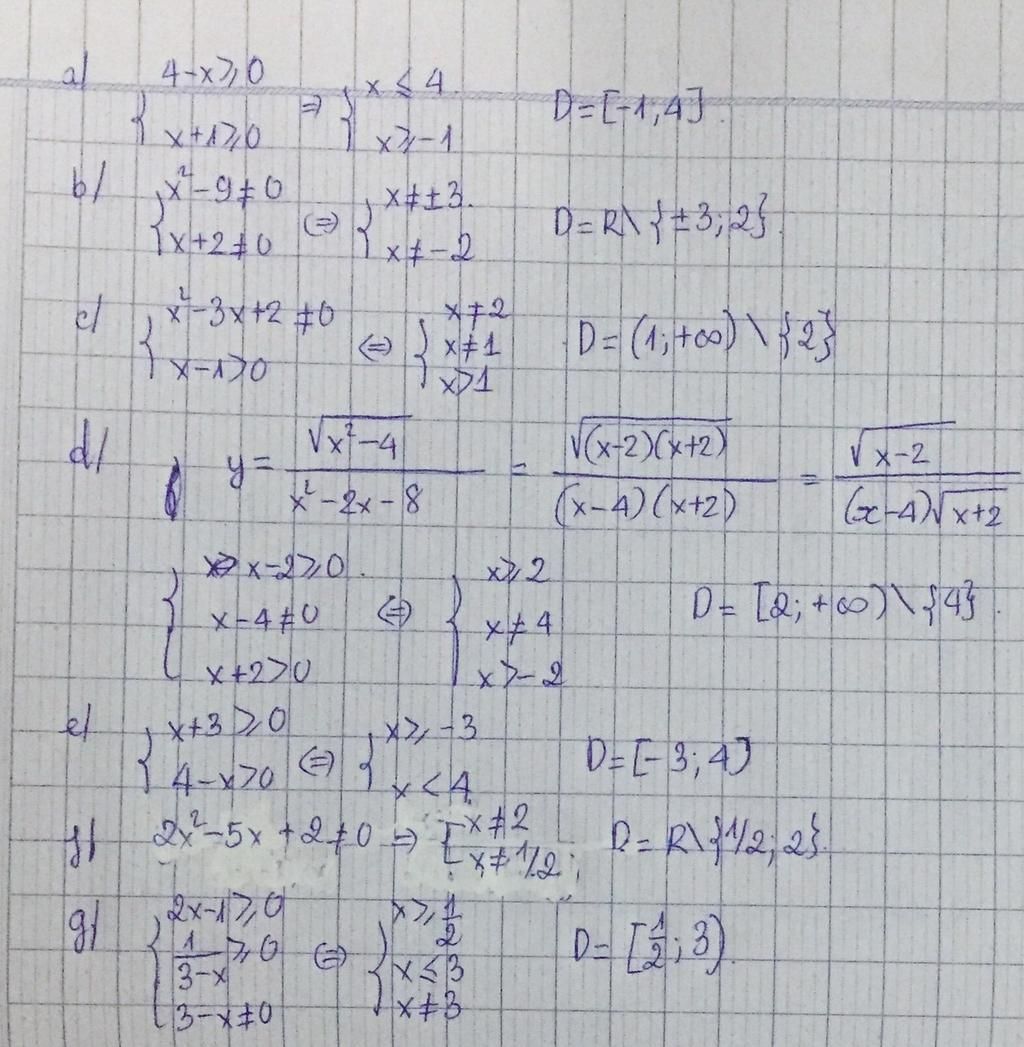 a/ { 4-x ≥ 0 ; x+1 ≥ 0 ⇒ { x ≤ 4 ; x ≥ -1 D = [-1; 4].
b/ { x² - 9 ≠ 0 ; x+2 ≠ 0 ⇔ { x ≠ ±3. ; x ≠ -2 D = R \ {±3; 2}.
c/ { x² - 3x + 2 ≠ 0 ; x - 1 > 0 ⇔ { x ≠ 2 ; x ≠ 1 ; x > 1 D = (1; +∞) \ {2}
d/ y = √(x² - 4) / (x² - 2x - 8) = √((x-2)(x+2)) / ((x-4)(x+2)) = √(x-2) / ((x-4)√(x+2))
{ x - 2 ≥ 0. ; x - 4 ≠ 0 ; x + 2 > 0 ⇔ { x ≥ 2 ; x ≠ 4 ; x > -2 D = [2; +∞) \ {4}.
e/ { x + 3 ≥ 0 ; 4 - x > 0 ⇔ { x ≥ -3 ; x < 4. D = [-3; 4)
f/ 2x² - 5x + 2 ≠ 0 ⇒ [ x ≠ 2 ; x ≠ 1/2; D = R \ {1/2; 2}.
g/ { 2x - 1 ≥ 0 ; 1/(3-x) ≥ 0 ; 3 - x ≠ 0 ⇔ { x ≥ 1/2 ; x ≤ 3 ; x ≠ 3 D = [1/2; 3).